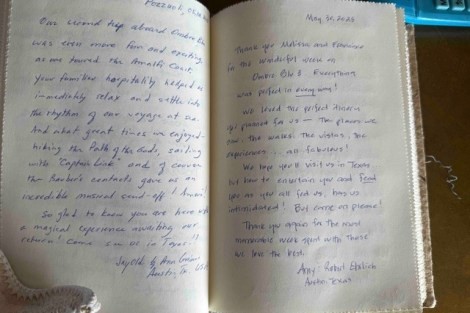 Our second trip aboard Ombre Blu
was even more fun and exciting
as we toured the Amalfi Coast.
Your familiar hospitality helped us
immediately relax and settle into
the rhythm of our voyage at sea.
And what great times we enjoyed -
hiking the Path of the Gods, sailing
with "Captain and of course
the Barber's contacts gave us an
incredible musical send-off!
So glad to know you are here
a magical experience awaiting our
return! Come see us in Texas!!
& Ann
Austin, TX USA
May 31, 2023
Thank you Melissa and
for the wonderful week on
Ombre Blu. Everything
was perfect in every way!
We loved the perfect itinerary
you planned for us — the places we
saw, the water, the vistas, the
experiences ... all fabulous!
We hope you'll visit us in Texas
but how to entertain you and feed
you as you all fed us, has us
intimidated! But come on please!
Thank you again for the most
memorable week spent with those
we love the best.
Amy & Robert Ehrlich
Austin, Texas